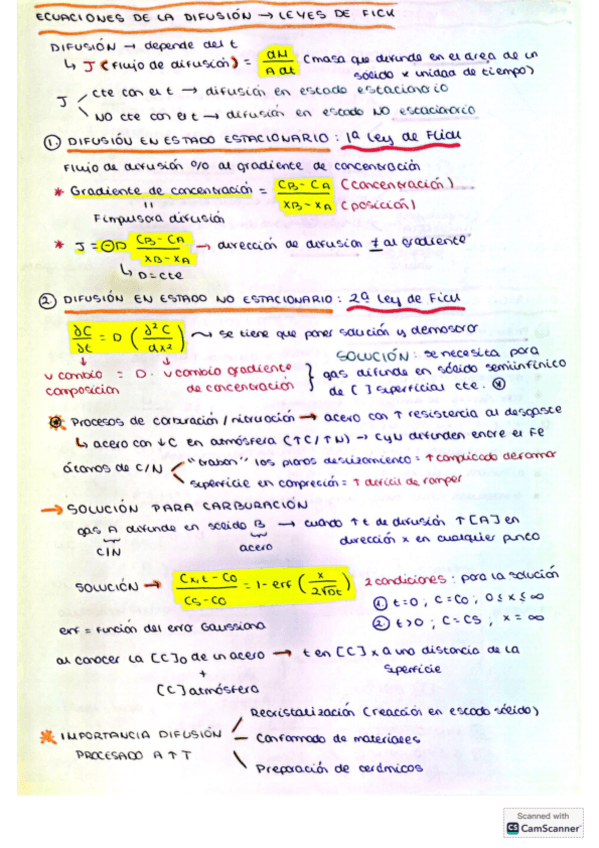 ECUACIONES DE LA DIFUSIÓN → LEYES DE FICK
DIFUSIÓN → depende del t
↳ J (flujo de difusión) = dN / A dt (masa que difunde en el área de un sólido x unidad de tiempo)
J
cte con el t → difusión en estado estacionario
NO cte con el t → difusión en estado NO estacionario
① DIFUSIÓN EN ESTADO ESTACIONARIO : 1ª Ley de Fick
Flujo de difusión % al gradiente de concentración
* Gradiente de concentración = CB - CA / XB - XA (concentración) (posición)
=
F impulsora difusión
* J = -D CB - CA / XB - XA → dirección de difusión ≠ al gradiente
↳ D = cte
② DIFUSIÓN EN ESTADO NO ESTACIONARIO : 2ª Ley de Fick
∂C/∂t = D (∂²C/dx²) ⤳ se tiene que poner solución y demostrar
v cambio composición = D · v cambio gradiente de concentración
SOLUCIÓN : se necesita para gas difunde en sólido semiinfinico de [ ] superficial cte.
Procesos de carburación / nitruración → acero con ↑ resistencia al desgaste
↳ acero con ↓ C en atmósfera (↑C/↑N) → C y N difunden entre el Fe
átomos de C/N
"traban" los planos deslizamiento = ↑ complicado deformar
superficie en compresión = ↑ difícil de romper
→ SOLUCIÓN PARA CARBURACIÓN
gas A difunde en sólido B → cuándo ↑ t de difusión ↑ [A] en dirección x en cualquier punto
C/N
acero
SOLUCIÓN → Cx,t - C0 / Cs - C0 = 1 - erf (x / 2√Dt)
2 condiciones : para la solución
① t = 0 ; C = C0 ; 0 ≤ x ≤ ∞
② t > 0 ; C = CS ; x = ∞
erf = función del error Gaussiana
al conocer la [C]0 de un acero → t en [C] x a una distancia de la superficie
+
[C] atmósfera
* IMPORTANCIA DIFUSIÓN PROCESADO A ↑ T
Recristalización (reacción en estado sólido)
Conformado de materiales
Preparación de cerámicos
Scanned with
CS CamScanner